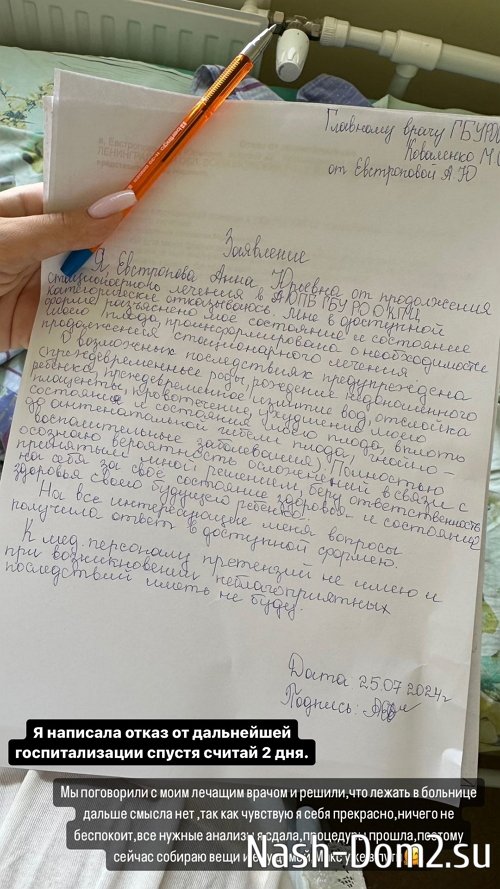 Главному врачу ГБУ РО
Коваленко М.
от Евстроповой А Ю
Заявление
Я, Евстропова Анна Юрьевна от продолжения
стационарного лечения в АОПБ ГБУ РО ОКПЦ
категорически отказываюсь. Мне в доступной
форме разъяснено мое состояние и состояние
моего плода, проинформирована о необходимости
продолжения стационарного лечения
О возможных последствиях предупреждена
(преждевременные роды, рождение недоношенного
ребенка, преждевременное излитие вод, отслойка
плаценты, кровотечение, ухудшение моего
состояния и состояния моего плода, вплоть
до антенатальной гибели плода, гнойно-
воспалительные заболевания). Полностью
осознаю вероятность осложнений в связи с
принятым мной решением, беру ответственность
на себя за свое состояние здоровья и состояние
здоровья своего будущего ребенка.
На все интересующие меня вопросы
получила ответ в доступной форме.
К мед. персоналу претензий не имею и
при возникновении неблагоприятных
последствий иметь не буду.
Дата: 25.07.2024г
Подпись:
Я написала отказ от дальнейшей
госпитализации спустя считай 2 дня.
Мы поговорили с моим лечащим врачом и решили,что лежать в больнице
дальше смысла нет ,так как чувствую я себя прекрасно,ничего не
беспокоит,все нужные анализы я сдала,процедуры прошла,поэтому
сейчас собираю вещи и
Nash-Dom2.su